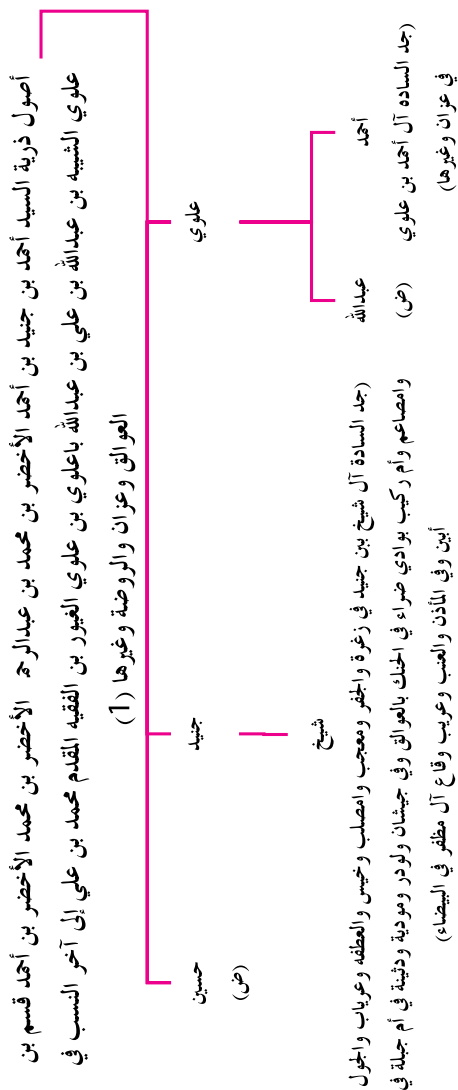 أصول ذرية السيد أحمد بن جنيد بن أحمد الأخضر بن محمد بن عبدالرحمن الأخضر بن محمد الأخضر بن أحمد قسم بن
علوي الشيبه بن عبدالله بن علي بن عبدالله باعلوي بن علوي الغيور بن الفقيه المقدم محمد بن علي إلى آخر النسب في
العوالق وعزان والروضة وغيرها (1)
علوي
جنيد
حسين
(ض)
أحمد
(جد الساده آل أحمد بن علوي
في عزان وغيرها)
عبدالله
(ض)
شيخ
(جد السادة آل شيخ بن جنيد في زغرة والجفر ومعجب وامصلب وخيس والعطفه وعرياب والجول
وامصاعم وأم ركيب بوادي ضراء في الحنك بالعوالق وفي جيشان ولودر ومودية ودثينة في أم جبلة في
أبين وفي المأذن والعنب وعريب وقاع آل مظفر في البيضاء)